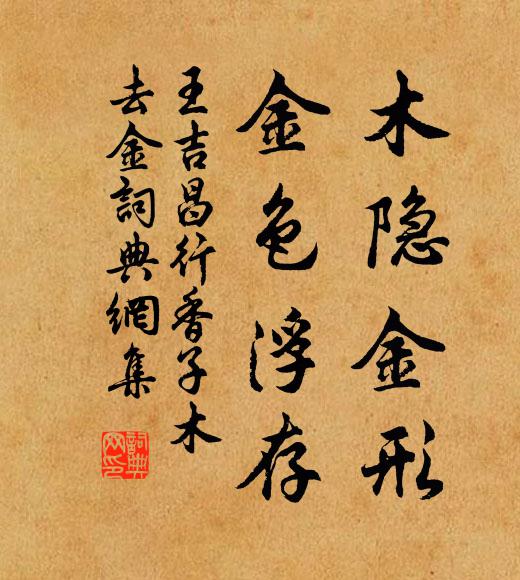 木隐金形
金色浮存
王吉昌行香子木
去金詞典網集
詞典网印